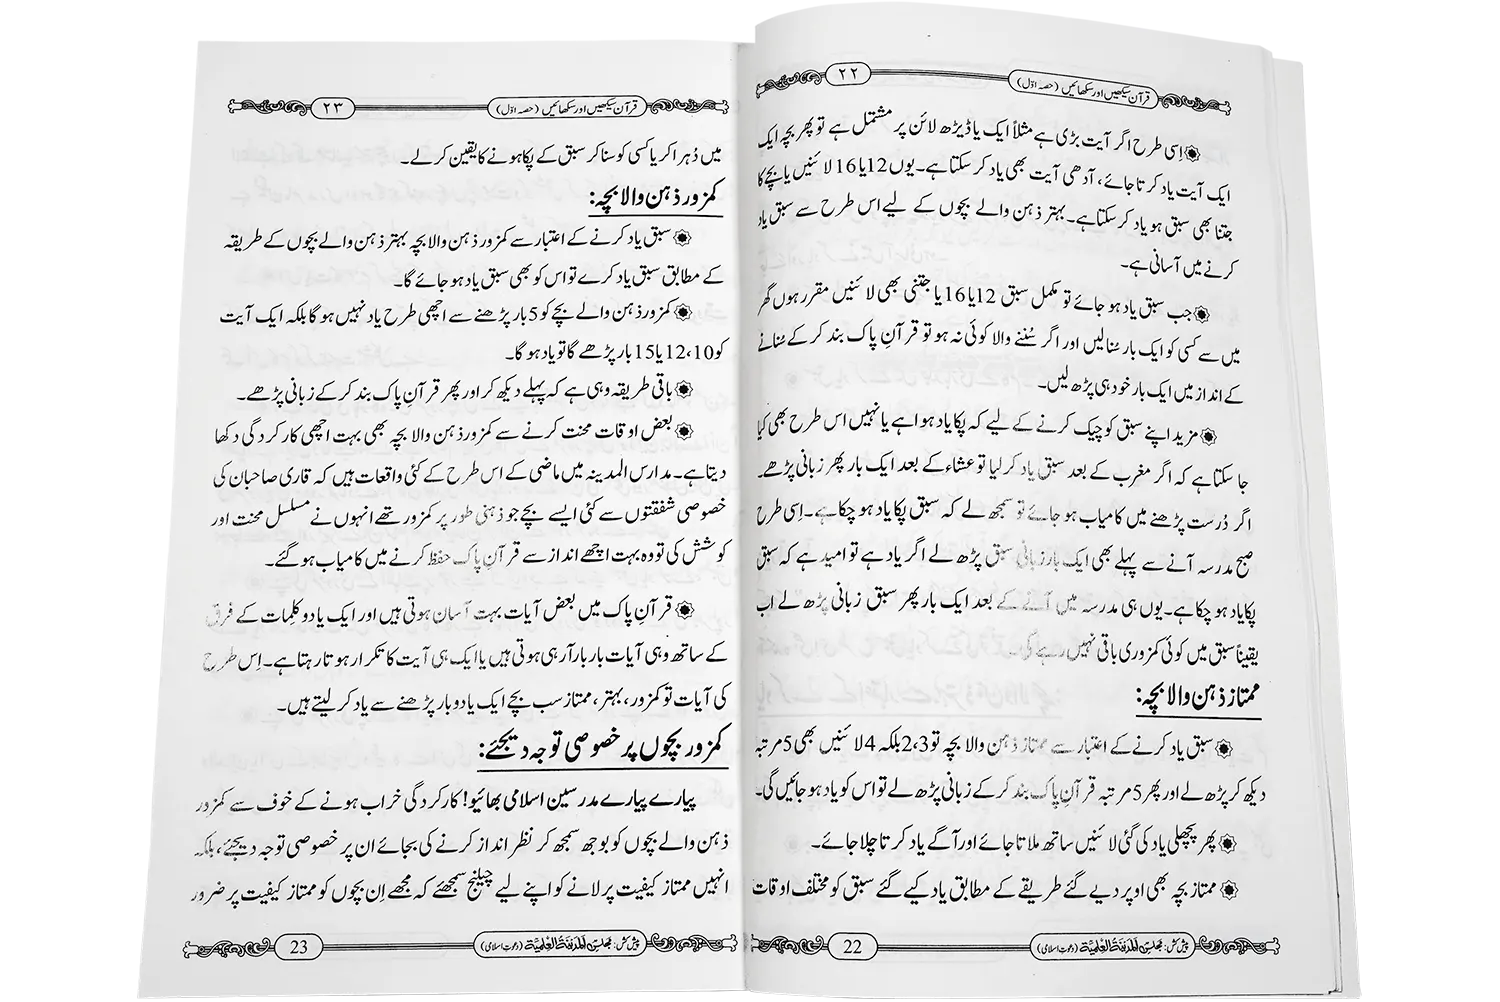 قرآن سیکھیں اور سکھائیں (حصہ اوّل)
۲۲
اِسی طرح اگر آیت بڑی ہے مثلاً ایک یا ڈیڑھ لائن پر مشتمل ہے تو پھر بچہ ایک
ایک آیت یاد کرتا جائے، آدھی آیت بھی یاد کر سکتا ہے۔ یوں 12 یا 16 لائنیں یا بچے کا
جتنا بھی سبق ہو یاد کر سکتا ہے۔ بہتر ذہن والے بچوں کے لیے اس طرح سے سبق یاد
کرنے میں آسانی ہے۔
جب سبق یاد ہو جائے تو مکمل سبق 12 یا 16 یا جتنی بھی لائنیں مقرر ہوں گھر
میں سے کسی کو ایک بار سُنالیں اور اگر سُننے والا کوئی نہ ہو تو قرآنِ پاک بند کر کے سُنانے
کے انداز میں ایک بار خود ہی پڑھ لیں۔
مزید اپنے سبق کو چیک کرنے کے لیے کہ پکا یاد ہوا ہے یا نہیں اس طرح بھی کیا
جا سکتا ہے کہ اگر مغرب کے بعد سبق یاد کر لیا تو عشاء کے بعد ایک بار پھر زبانی پڑھے۔
اگر دُرست پڑھنے میں کامیاب ہو جائے تو سمجھ لے کہ سبق پکا یاد ہو چکا ہے۔ اِسی طرح
صبح مدرسہ آنے سے پہلے بھی ایک بار زبانی سبق پڑھ لے اگر یاد ہے تو امید ہے کہ سبق
پکا یاد ہو چکا ہے۔ یوں ہی مدرسہ میں آنے کے بعد ایک بار پھر سبق زبانی پڑھ لے اب
یقیناً سبق میں کوئی کمزوری باقی نہیں رہے گی۔
ممتاز ذہن والا بچہ:
سبق یاد کرنے کے اعتبار سے ممتاز ذہن والا بچہ تو 2،3 بلکہ 4 لائنیں بھی 5 مرتبہ
دیکھ کر پڑھ لے اور پھر 5 مرتبہ قرآنِ پاک بند کر کے زبانی پڑھ لے تو اس کو یاد ہو جائیں گی۔
پھر پچھلی یاد کی گئی لائنیں ساتھ ملاتا جائے اور آگے یاد کرتا چلا جائے۔
ممتاز بچہ بھی اوپر دیے گئے طریقے کے مطابق یاد کیے گئے سبق کو مختلف اوقات
پیش کش: مجلس المدینۃ العلمیۃ (دعوتِ اسلامی)
22
قرآن سیکھیں اور سکھائیں (حصہ اوّل)
۲۳
میں دُہرا کر یا کسی کو سنا کر سبق کے پکا ہونے کا یقین کر لے۔
کمزور ذہن والا بچہ:
سبق یاد کرنے کے اعتبار سے کمزور ذہن والا بچہ بہتر ذہن والے بچوں کے طریقہ
کے مطابق سبق یاد کرے تو اس کو بھی سبق یاد ہو جائے گا۔
کمزور ذہن والے بچے کو 5 بار پڑھنے سے اچھی طرح یاد نہیں ہو گا بلکہ ایک آیت
کو 12،10 یا 15 بار پڑھے گا تو یاد ہو گا۔
باقی طریقہ وہی ہے کہ پہلے دیکھ کر اور پھر قرآنِ پاک بند کر کے زبانی پڑھے۔
بعض اوقات محنت کرنے سے کمزور ذہن والا بچہ بھی بہت اچھی کارکردگی دکھا
دیتا ہے۔ مدارس المدینہ میں ماضی کے اس طرح کے کئی واقعات ہیں کہ قاری صاحبان کی
خصوصی شفقتوں سے کئی ایسے بچے جو ذہنی طور پر کمزور تھے انہوں نے مسلسل محنت اور
کوشش کی تو وہ بہت اچھے انداز سے قرآنِ پاک حفظ کرنے میں کامیاب ہو گئے۔
قرآنِ پاک میں بعض آیات بہت آسان ہوتی ہیں اور ایک یا دو کلِمات کے فرق
کے ساتھ وہی آیات بار بار آ رہی ہوتی ہیں یا ایک ہی آیت کا تکرار ہوتا رہتا ہے۔ اِس طرح
کی آیات تو کمزور، بہتر، ممتاز سب بچے ایک یا دو بار پڑھنے سے یاد کر لیتے ہیں۔
کمزور بچوں پر خصوصی توجہ دیجئے:
پیارے پیارے مدرسین اسلامی بھائیو! کارکردگی خراب ہونے کے خوف سے کمزور
ذہن والے بچوں کو بوجھ سمجھ کر نظر انداز کرنے کی بجائے ان پر خصوصی توجہ دیجئے، بلکہ
انہیں ممتاز کیفیت پر لانے کو اپنے لیے چیلنج سمجھئے کہ مجھے اِن بچوں کو ممتاز کیفیت پر ضرور
پیش کش: مجلس المدینۃ العلمیۃ (دعوتِ اسلامی)
23